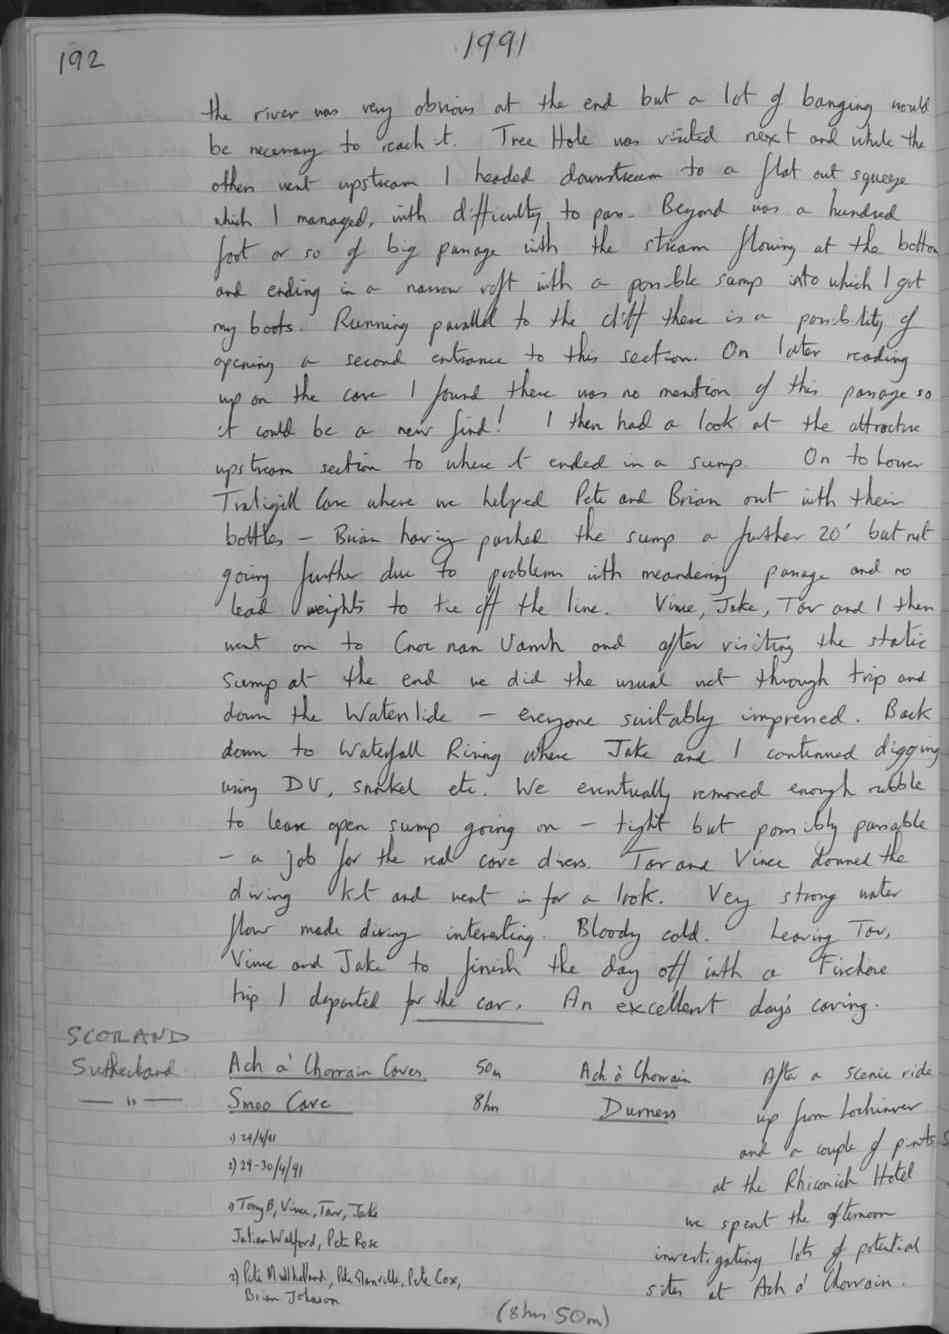 192
1991
the river was very obvious at the end but a lot of banging would
be necessary to reach it. Tree Hole was visited next and while the
others went upstream I headed downstream to a flat out squeeze
which I managed, with difficulty, to pass. Beyond was a hundred
foot or so of big passage with the stream flowing at the bottom
and ending in a narrow rift with a possible sump into which I got
my boots. Running parallel to the cliff there is a possibility of
opening a second entrance to this section. On later reading
up on the cave I found there was no mention of this passage so
it could be a new find! I then had a look at the attractive
upstream section to where it ended in a sump. On to Lower
Traligill Cave where we helped Pete and Brian out with their
bottles - Brian having pushed the sump a further 20' but not
going further due to problems with meandering passage and no
lead weights to tie off the line. Vince, Jake, Tav and I then
went on to Cnoc nan Uamh and after visiting the static
sump at the end we did the usual wet through trip and
down the Waterslide - everyone suitably impressed. Back
down to Waterfall Rising where Jake and I continued digging
using DV, snorkel etc. We eventually removed enough rubble
to leave open sump going on - tight but possibly passable
- a job for the real cave divers. Tav and Vince donned the
diving kit and went in for a look. Very strong water
flow made diving interesting. Bloody cold. Leaving Tav,
Vince and Jake to finish the day off with a Firehose
trip I departed for the car. An excellent day's caving.
SCOTLAND
Sutherland
Ach a' Chorrain Caves 50m Ach a' Chorrain
— " — Smoo Cave 8hrs Durness
1) 29/4/91
2) 29-30/4/91
1) Tony B, Vince, Tav, Jake
Julian Walford, Pete Rose
2) Pete Mulholland, Pete Glanville, Pete Cox,
Brian Johnson
After a scenic ride
up from Lochinver
and a couple of pints
at the Rhiconich Hotel
we spent the afternoon
investigating lots of potential
sites at Ach a' Chorrain.
(8hrs 50m)